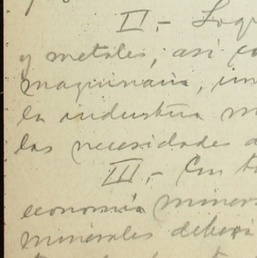 II.- Log
y metales, así co
maquinaria, in
la industria m
las necesidades d
III.- Con t
economía minera
minerales deberá